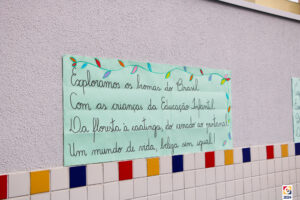 Exploramos os biomas do Brasil
Com as crianças da Educação Infantil.
Da floresta à caatinga, do cerrado ao pantanal
Um mundo de vida, beleza sem igual!